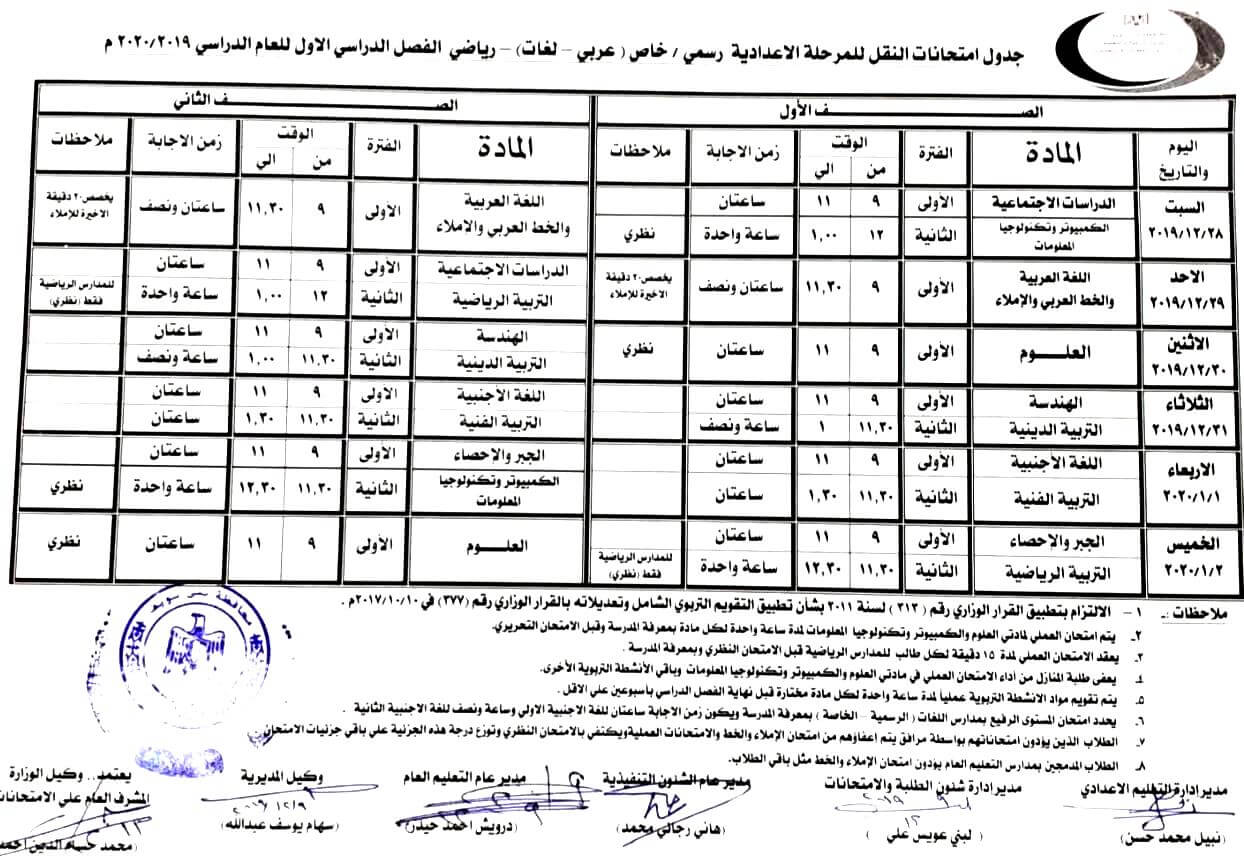 جدول امتحانات النقل للمرحلة الاعدادية رسمي / خاص ( عربي - لغات) - رياضي الفصل الدراسي الاول للعام الدراسي ٢٠٢٠/٢٠١٩ م
الصف الأول
الصف الثاني
اليوم والتاريخ المادة الفترة الوقت من الي زمن الاجابة ملاحظات المادة الفترة الوقت من الي زمن الاجابة ملاحظات
السبت ٢٠١٩/١٢/٢٨
الدراسات الاجتماعية الأولى ٩ ١١ ساعتان
الكمبيوتر وتكنولوجيا المعلومات الثانية ١٢ ١,٠٠ ساعة واحدة نظري
اللغة العربية والخط العربي والاملاء الأولى ٩ ١١,٣٠ ساعتان ونصف يخصص٢٠ دقيقة الاخيرة للإملاء
الاحد ٢٠١٩/١٢/٢٩
اللغة العربية والخط العربي والإملاء الأولى ٩ ١١,٣٠ ساعتان ونصف يخصص٢٠ دقيقة الاخيرة للإملاء
الدراسات الاجتماعية الأولى ٩ ١١ ساعتان
التربية الرياضية الثانية ١٢ ١,٠٠ ساعة واحدة للمدارس الرياضية فقط (نظري)
الاثنين ٢٠١٩/١٢/٣٠
العلوم الأولى ٩ ١١ ساعتان نظري
الهندسة الأولى ٩ ١١ ساعتان
التربية الدينية الثانية ١١,٣٠ ١,٠٠ ساعة ونصف
الثلاثاء ٢٠١٩/١٢/٣١
الهندسة الأولى ٩ ١١ ساعتان
التربية الدينية الثانية ١١,٣٠ ١ ساعة ونصف
اللغة الأجنبية الأولى ٩ ١١ ساعتان
التربية الفنية الثانية ١١,٣٠ ١,٣٠ ساعتان
الاربعاء ٢٠٢٠/١/١
اللغة الأجنبية الأولى ٩ ١١ ساعتان
التربية الفنية الثانية ١١,٣٠ ١,٣٠ ساعتان
الجبر والإحصاء الأولى ٩ ١١ ساعتان
الكمبيوتر وتكنولوجيا المعلومات الثانية ١١,٣٠ ١٢,٣٠ ساعة واحدة نظري
الخميس ٢٠٢٠/١/٢
الجبر والإحصاء الأولى ٩ ١١ ساعتان
التربية الرياضية الثانية ١١,٣٠ ١٢,٣٠ ساعة واحدة للمدارس الرياضية فقط (نظري)
العلوم الأولى ٩ ١١ ساعتان نظري
ملاحظات :. ١- الالتزام بتطبيق القرار الوزاري رقم (٣١٣ ) لسنة ٢٠١١ بشأن تطبيق التقويم التربوي الشامل وتعديلاته بالقرار الوزاري رقم (٣٧٧) في ٢٠١٧/١٠/١٠م .
٢. يتم امتحان العملي لمادتي العلوم والكمبيوتر وتكنولوجيا المعلومات لمدة ساعة واحدة لكل مادة بمعرفة المدرسة وقبل الامتحان التحريري.
٣. يعقد الامتحان العملي لمدة ١٥ دقيقة لكل طالب للمدارس الرياضية قبل الامتحان النظري وبمعرفة المدرسة .
٤. يعفى طلبة المنازل من أداء الامتحان العملي في مادتي العلوم والكمبيوتر وتكنولوجيا المعلومات وباقي الأنشطة التربوية الأخرى.
٥. يتم تقويم مواد الانشطة التربوية عملياً لمدة ساعة واحدة لكل مادة مختارة قبل نهاية الفصل الدراسي بأسبوعين علي الاقل .
٦. يحدد امتحان المستوى الرفيع بمدارس اللغات ( الرسمية - الخاصة ) بمعرفة المدرسة ويكون زمن الاجابة ساعتان للغة الاجنبية الاولي وساعة ونصف للغة الاجنبية الثانية .
٧. الطلاب الذين يؤدون امتحاناتهم بواسطة مرافق يتم اعفاؤهم من امتحان الإملاء والخط والامتحانات العملية ويكتفي بالامتحان النظري وتوزع درجة هذه الجزئية علي باقي جزئيات الامتحان
٨. الطلاب المدمجين بمدارس التعليم العام يؤدون امتحان الإملاء والخط مثل باقي الطلاب.
مدير ادارة التعليم الاعدادي مدير ادارة شئون الطلبة والامتحانات مدير عام الشئون التنفيذية مدير عام التعليم العام وكيل المديرية يعتمد.. وكيل الوزارة
المشرف العام علي الامتحانات
(نبيل محمد حسن) (لبني عويس علي) (هاني رجالي محمد) (درويش احمد حيدر) (سهام يوسف عبدالله) (محمد حسام الدين احمد
محافظة بني سويف